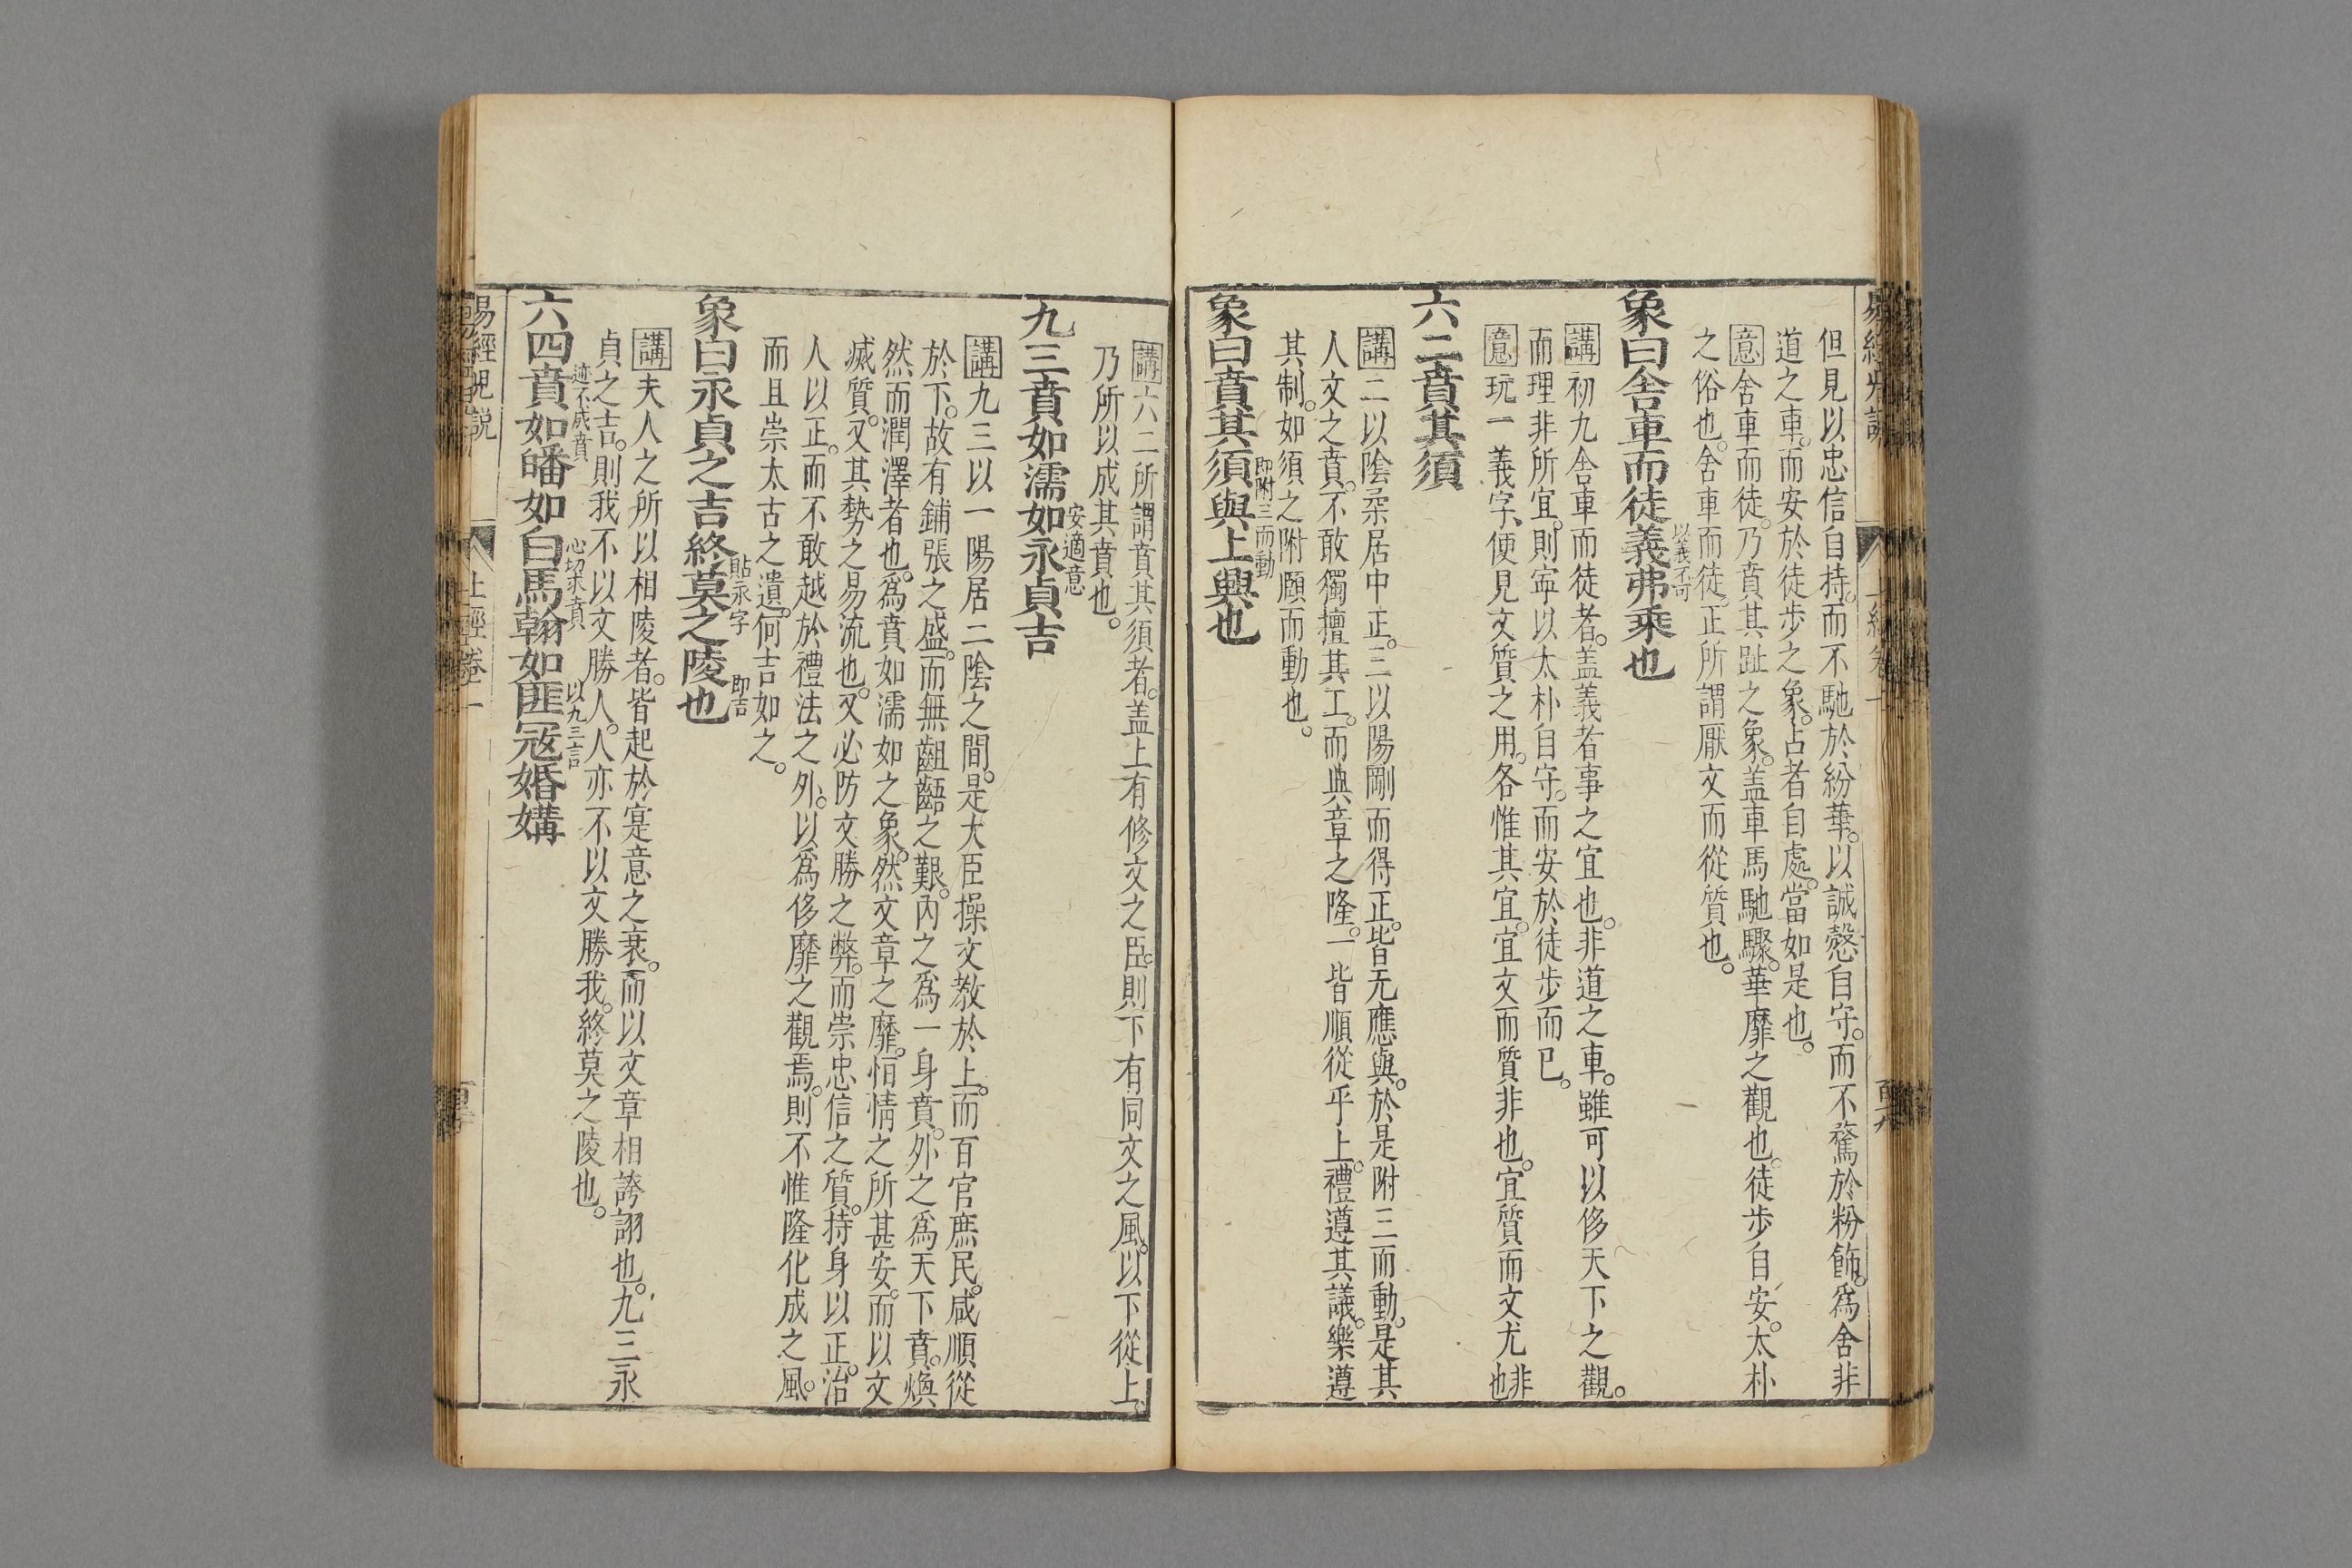 但見以忠信自持。而不馳於紛華。以誠慤自守。而不騖於粉飾。爲舍非
道之車。而安於徒步之象。占者自處。當如是也。
意舍車而徒。乃賁其趾之象。盖車馬馳驟。華靡之觀也。徒步自安。太朴
之俗也。舍車而徒。正所謂厭文而從質也。
象曰舍車而徒義弗乘也
以義不可
講初九舍車而徒者。盖義者事之宜也。非道之車。雖可以侈天下之觀。
而理非所宜。則寕以太朴自守。而安於徒步而已。
意玩一義字、便見文質之用。各惟其宜。宜文而質非也。宜質而文尤非也
六二賁其須
講二以陰柔居中正。三以陽剛而得正。皆无應與。於是附三而動。是其
人文之賁。不敢獨擅其工。而典章之隆。一皆順從乎上。禮遵其議。樂遵
其制。如須之附頤而動也。
象曰賁其須與上興也
即附三而動
講六二所謂賁其須者。盖上有修文之臣。則下有同文之風。以下從上。
乃所以成其賁也。
九三賁如濡如永貞吉
安適意
講九三以一陽居二陰之間。是大臣操文教於上。而百官庶民。咸順從
於下。故有鋪張之盛。而無齟齬之艱。內之爲一身賁。外之爲天下賁。煥
然而潤澤者也。爲賁如濡如之象。然文章之靡。恒情之所甚安。而以文
滅質。又其勢之易流也。又必防文勝之弊。而崇忠信之質。持身以正。治
人以正。而不敢越於禮法之外。以爲侈靡之觀焉。則不惟隆化成之風。
而且崇太古之遺。何吉如之。
象曰永貞之吉終莫之陵也
貼永字 即吉
講夫人之所以相陵者。皆起於寔意之衰。而以文章相誇詡也。九三永
貞之吉。則我不以文勝人。人亦不以文勝我。終莫之陵也。
六四賁如皤如白馬翰如匪寇婚媾
迹不成賁 心切求賁 以九三言
易經兒説 上經卷二